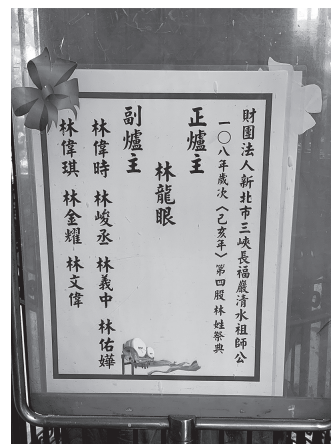 財團法人新北市三峽長福巖清水祖師公
一〇八年歲次〈己亥年〉第四股林姓祭典
正爐主
林龍眼
副爐主
林偉時 林峻丞 林義中 林佑嬅
林偉琪 林金耀 林文偉